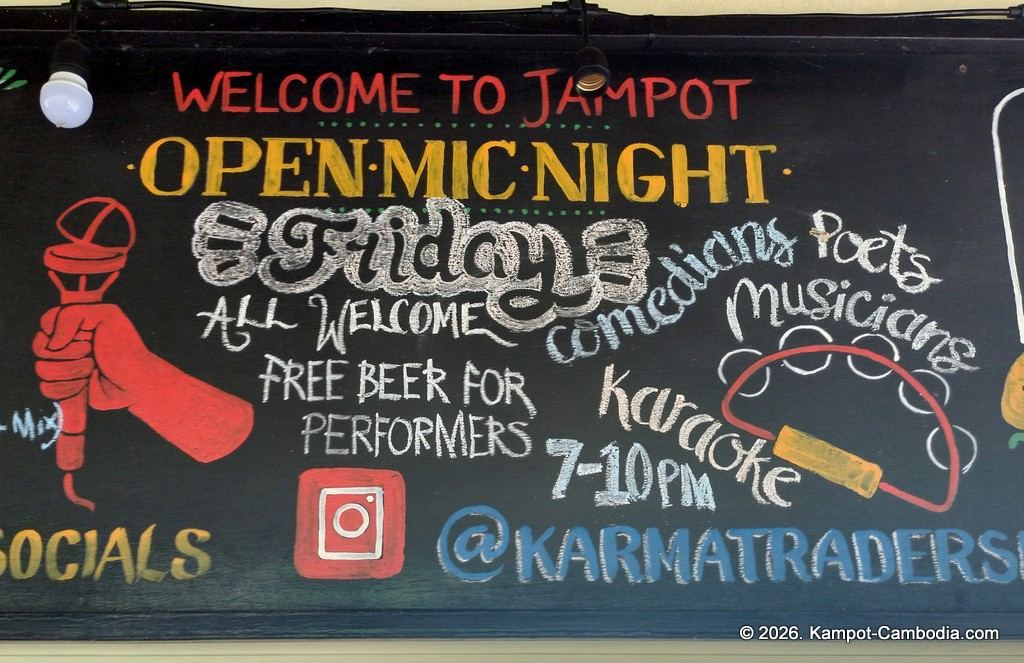 WELCOME TO JAMPOT
OPEN·MIC·NIGHT
Friday
ALL WELCOME
comedians
Poets
Musicians
FREE BEER FOR
PERFORMERS
Karaoke
7-10PM
-Mix)
SOCIALS
@KARMATRADERS
© 2026. Kampot-Cambodia.com